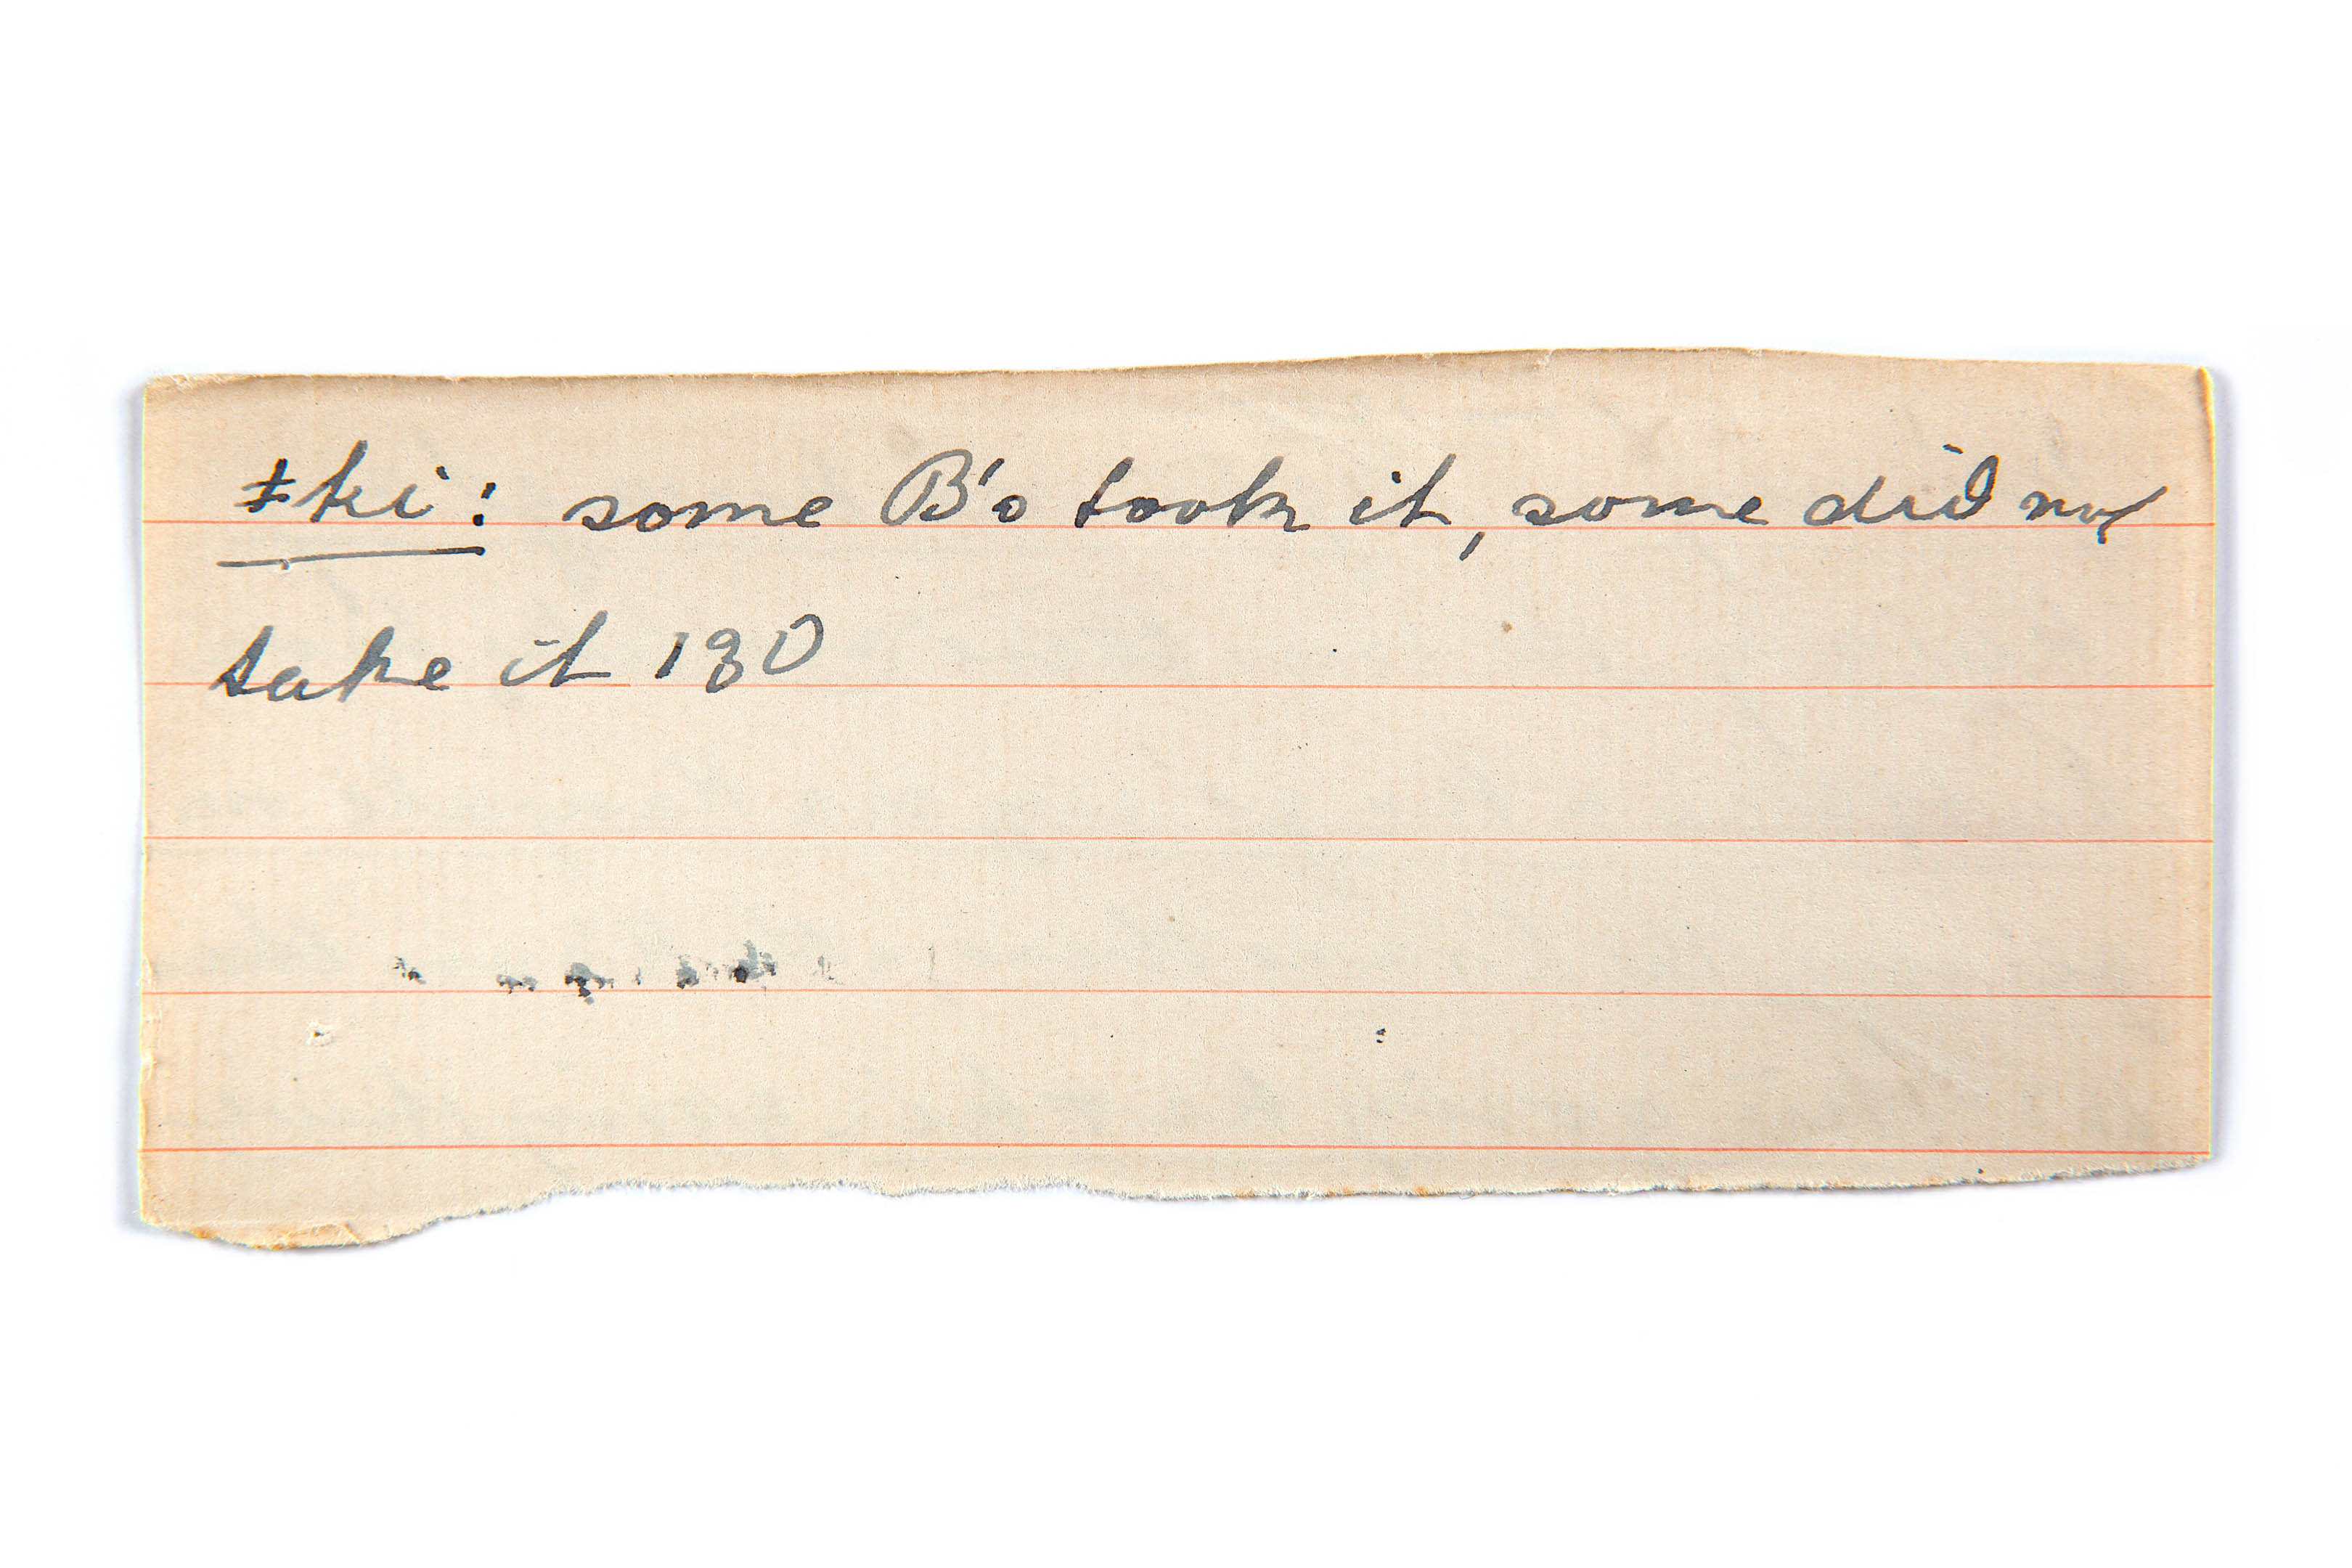 ǂki: some B's took it, some did not
take it 130